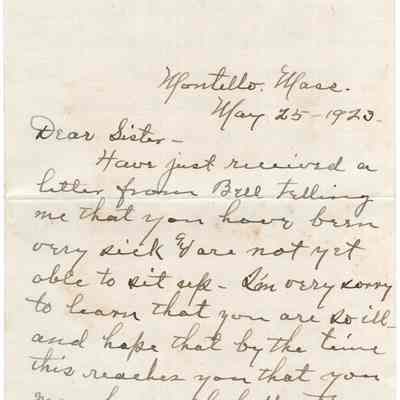 Montello. Mass.
May 25-1923.
Dear Sister-
Have just received a
letter from Bell telling
me that you have been
very sick & are not yet
able to sit up- I'm very sorry
to learn that you are so ill-
and hope that by the time
this reaches you that you